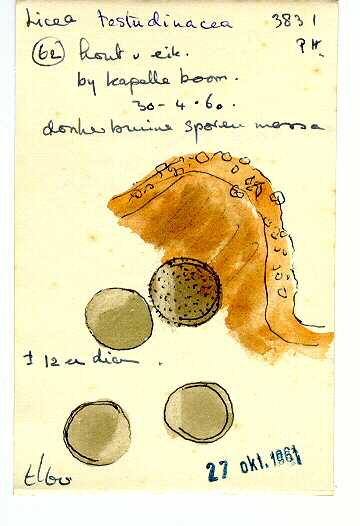 Licea testudinacea 3831
62 hout v eik. PH.
by kapelle boom.
30-4.60.
donkerbruine sporen massa
± 12 u diam.
27 okt. 1961